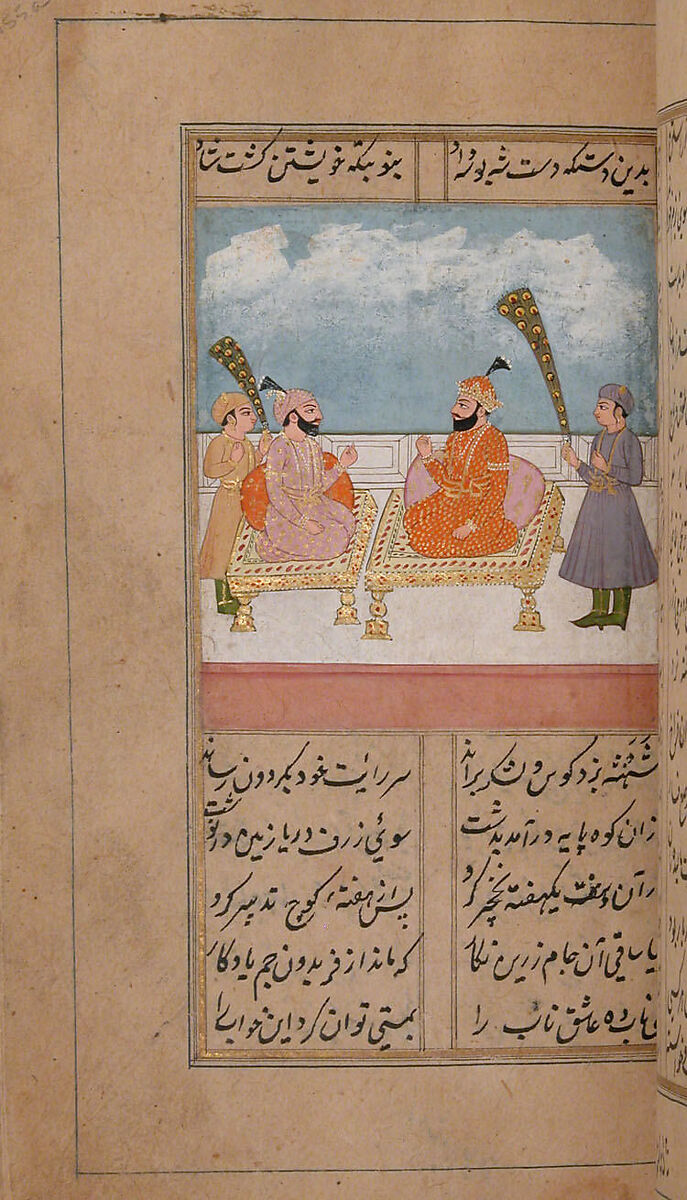 بدین دستکه دست شه بوسه داد بنوبتکه خویشتن کشت شاد
شهنشه بزد کوس و لشکر براند سر رایت خود بکردون رساند
زان کوه پایه درآمد بدشت سوئی زرف دریا زمین درنوشت
یکهفته نخچیر کرد پس از هفته کوچ تدبیر کرد
یا ساقی آن جام زرین نکار که ماند از فریدون جم یادکار
ناب ده عاشق ناب را بمستی توان کرد این خواب را